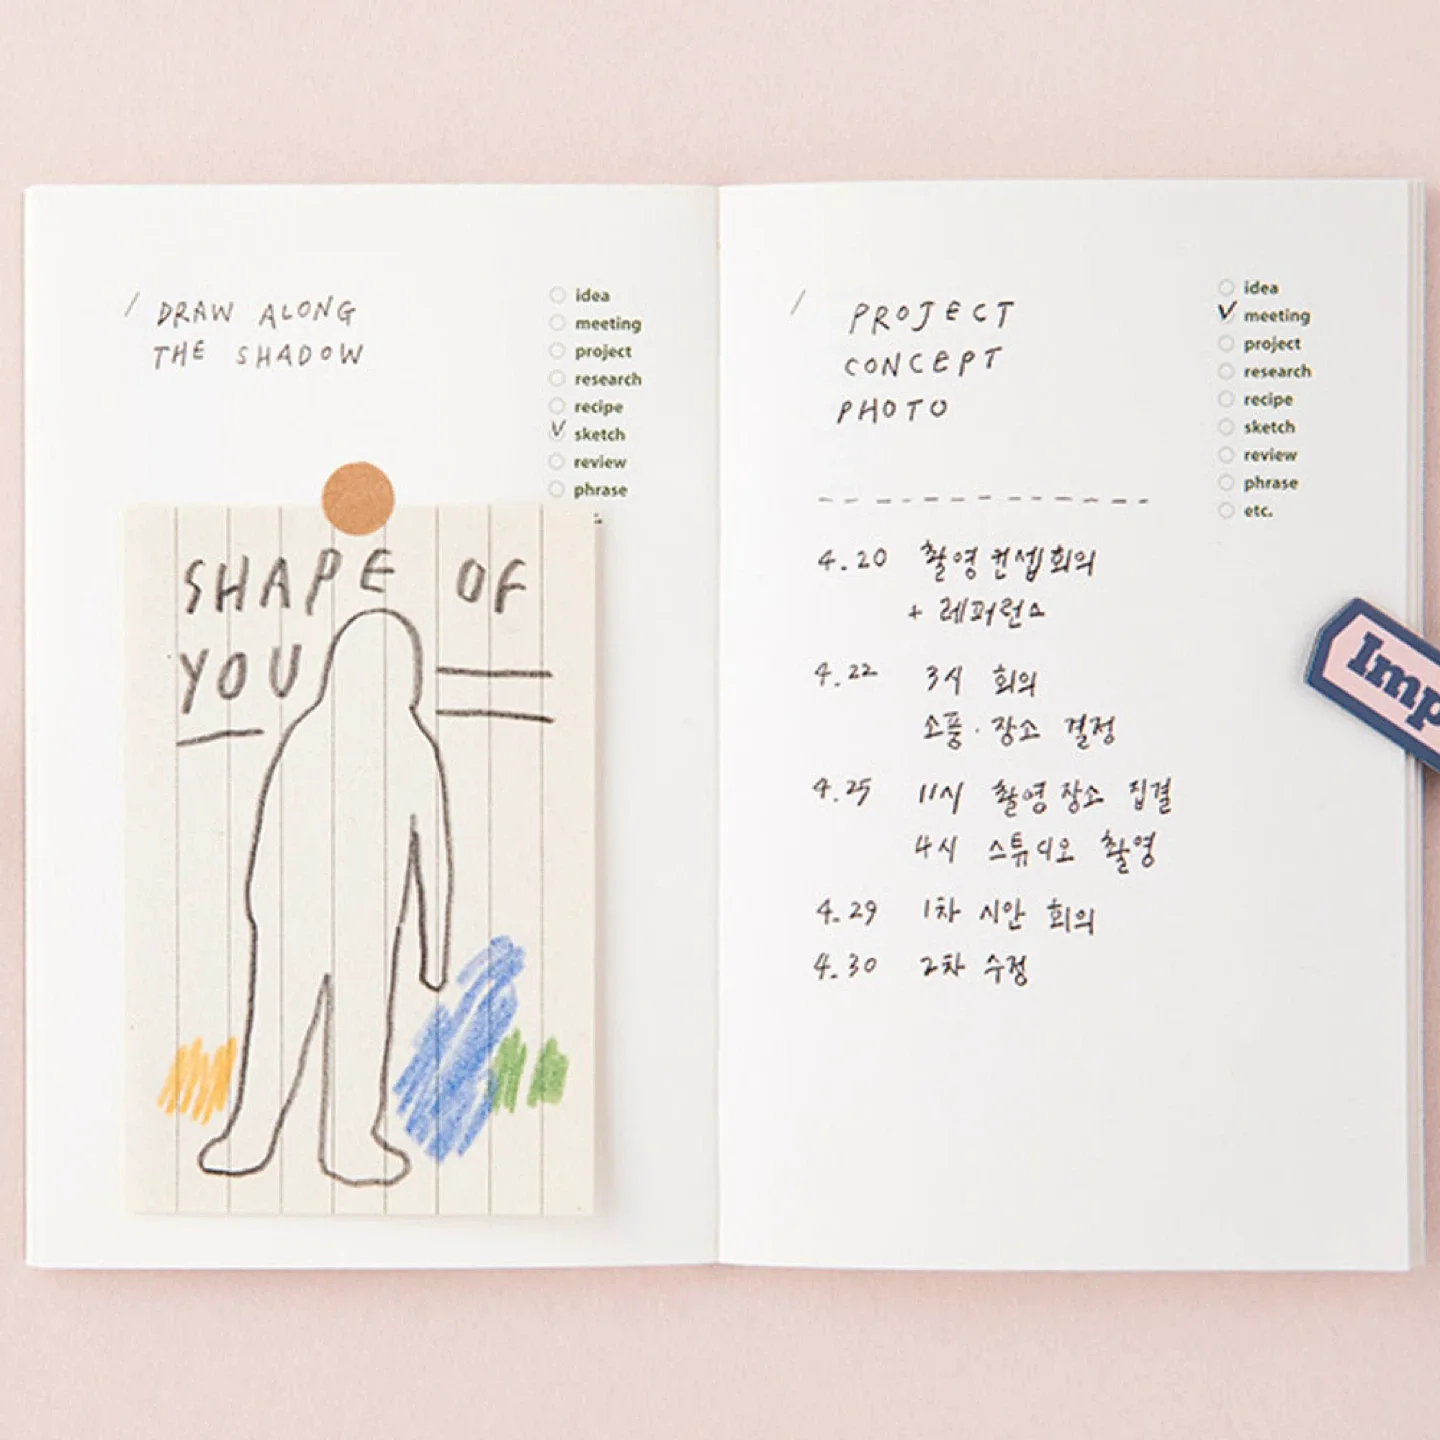 / DRAW ALONG
THE SHADOW
idea
meeting
project
research
recipe
V sketch
review
phrase
SHAPE OF
YOU
/ PROJECT
CONCEPT
PHOTO
idea
V meeting
project
research
recipe
sketch
review
phrase
etc.
4.20 촬영 컨셉회의
+ 레퍼런스
4.22 3시 회의
소풍·장소 결정
4.25 11시 촬영장소 집결
4시 스튜디오 촬영
4.29 1차 시안 회의
4.30 2차 수정
Imp